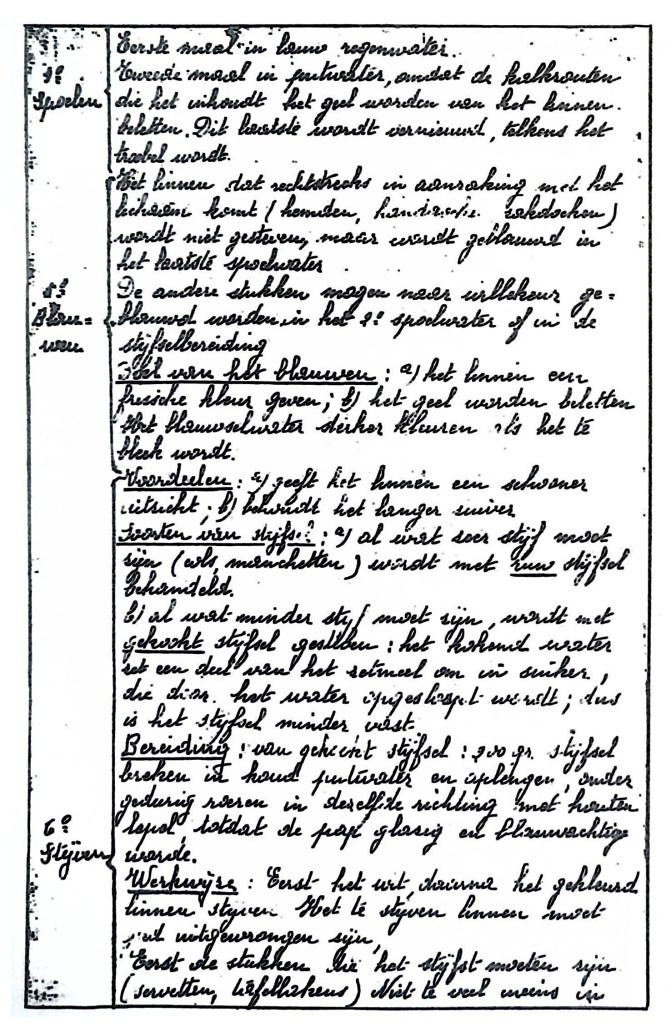 Eerste maal in lauw regenwater.
Tweede maal in putwater, omdat de kalkzouten
Spoelen
die het inhoudt het geel worden van het linnen
beletten. Dit laatste wordt vernieuwd, telkens het
troebel wordt.
Het linnen dat rechtstreeks in aanraking met het
lichaam komt (hemden, zakdoeken)
wordt niet gesteven, maar wordt geblauwd in
het laatste spoelwater
5º
De andere stukken mogen naar willekeur ge=
Blau=
blauwd worden in het 2e spoelwater of in de
wen
stijfselbereiding
Doel van het blauwen : a) het linnen een
frissche kleur geven; b) het geel worden beletten
Het blauwselwater sterker kleuren als het te
bleek wordt.
Voordeelen : a) geeft het linnen een schooner
uitzicht; b) behoudt het langer zuiver
Soorten van stijfsel : a) al wat zeer stijf moet
zijn (cols, manchetten) wordt met rauw stijfsel
behandeld.
b) al wat minder stijf moet zijn, wordt met
gekookt stijfsel gesteven : het kokend water
zet een deel van het zetmeel om in suiker,
die door het water opgeslorpt wordt; dus
is het stijfsel minder vast
Bereiding : van gekookt stijfsel : 200 gr. stijfsel
breken in koud putwater en oplengen, onder
gedurig roeren in dezelfde richting met houten
6º
lepel, totdat de pap glazig en blauwachtig
Stijven
worde.
Werkwijze : Eerst het wit, daarna het gekleurd
linnen stijven Het te stijven linnen moet
uitgewrongen zijn,
Eerst de stukken die het stijfst moeten zijn
(servetten, tafellakens) Niet te veel ineens in